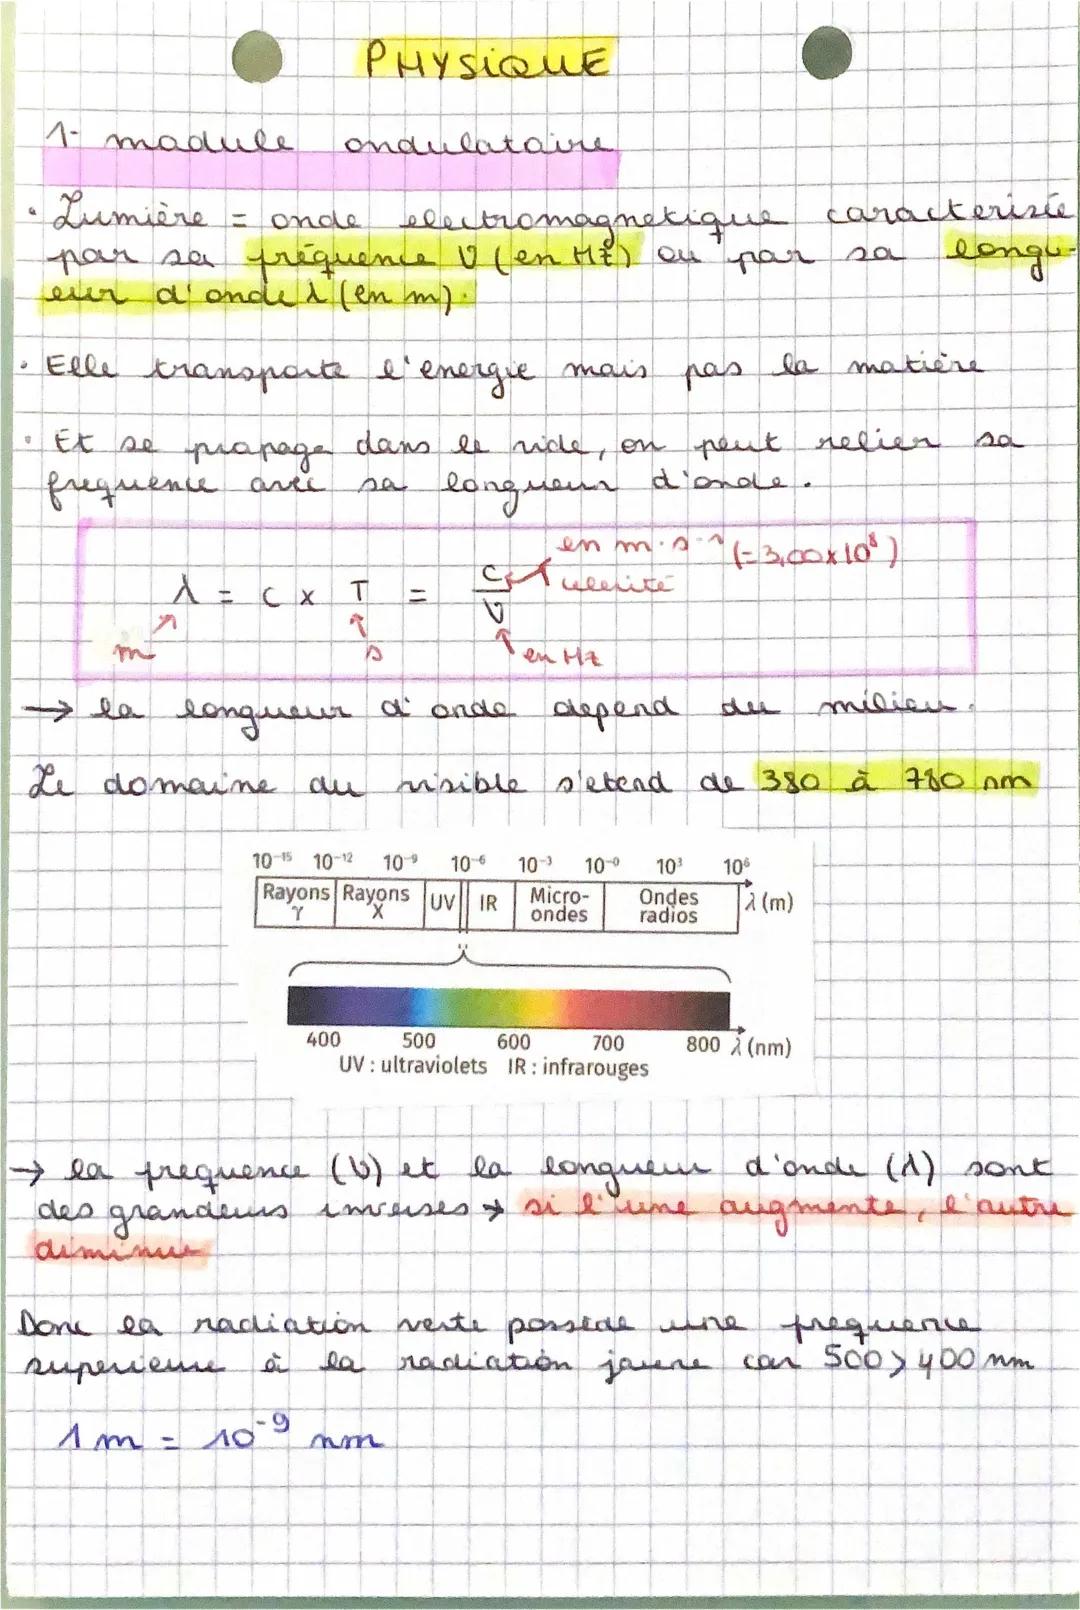 PHYSIQUE
1- module ondulatoire
• Lumière = onde electromagnetique caracterisée
par sa fréquence ν (en Hz) ou par sa longu-
eur d'onde λ (en m).
• Elle transporte l'energie mais pas la matière
• Et se propage dans le vide, on peut relier sa
frequence avec sa longueur d'onde.
en m.s⁻¹ (= 3,00 x 10⁸)
λ = c x T = c/ν
célérité
m s en Hz
→ la longueur d'onde depend du milieu.
Le domaine du visible s'etend de 380 à 780 nm
10⁻¹⁵ 10⁻¹² 10⁻⁹ 10⁻⁶ 10⁻³ 10⁻⁰ 10³ 10⁶
Rayons γ Rayons X UV IR Micro-ondes Ondes radios λ (m)
400 500 600 700 800 λ (nm)
UV : ultraviolets IR : infrarouges
→ la frequence (ν) et la longueur d'onde (λ) sont
des grandeurs inverses → si l'une augmente, l'autre
diminue
Donc la radiation verte possede une frequence
superieure à la radiation jaune car 500 > 400 nm
1 m = 10⁻⁹ nm